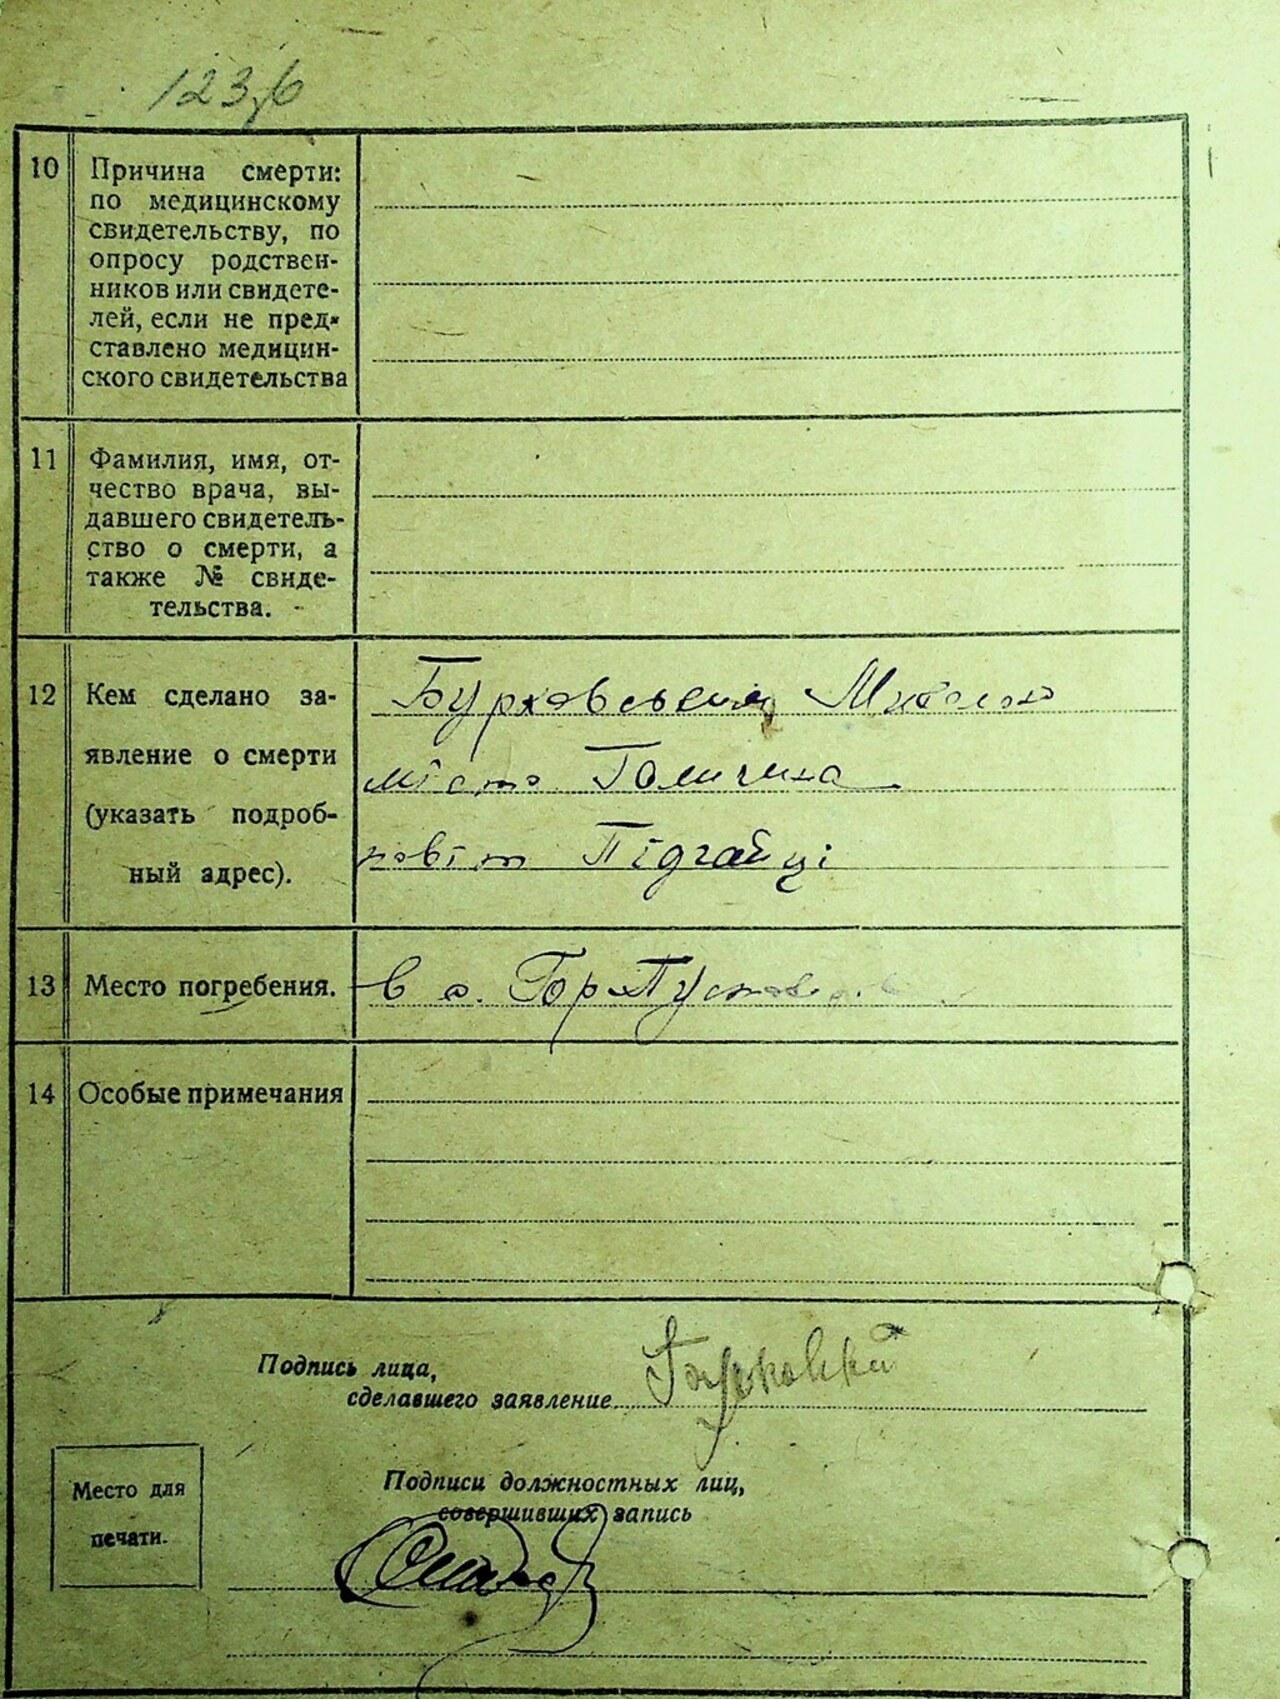 10 Причина смерти:
по медицинскому
свидетельству, по
опросу родствен-
ников или свидете-
лей, если не пред-
ставлено медицин-
ского свидетельства
11 Фамилия, имя, от-
чество врача, вы-
давшего свидетель-
ство о смерти, а
также № свиде-
тельства.
12 Кем сделано за-
явление о смерти
(указать подроб-
ный адрес).
місто
повіт Підгайці
13 Место погребения.
в с.
14 Особые примечания
Подпись лица,
сделавшего заявление
Подписи должностных лиц,
совершивших запись
Место для
печати.